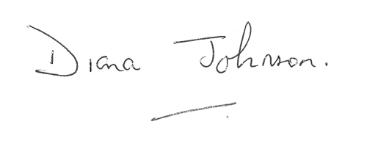 Diana Johnson.